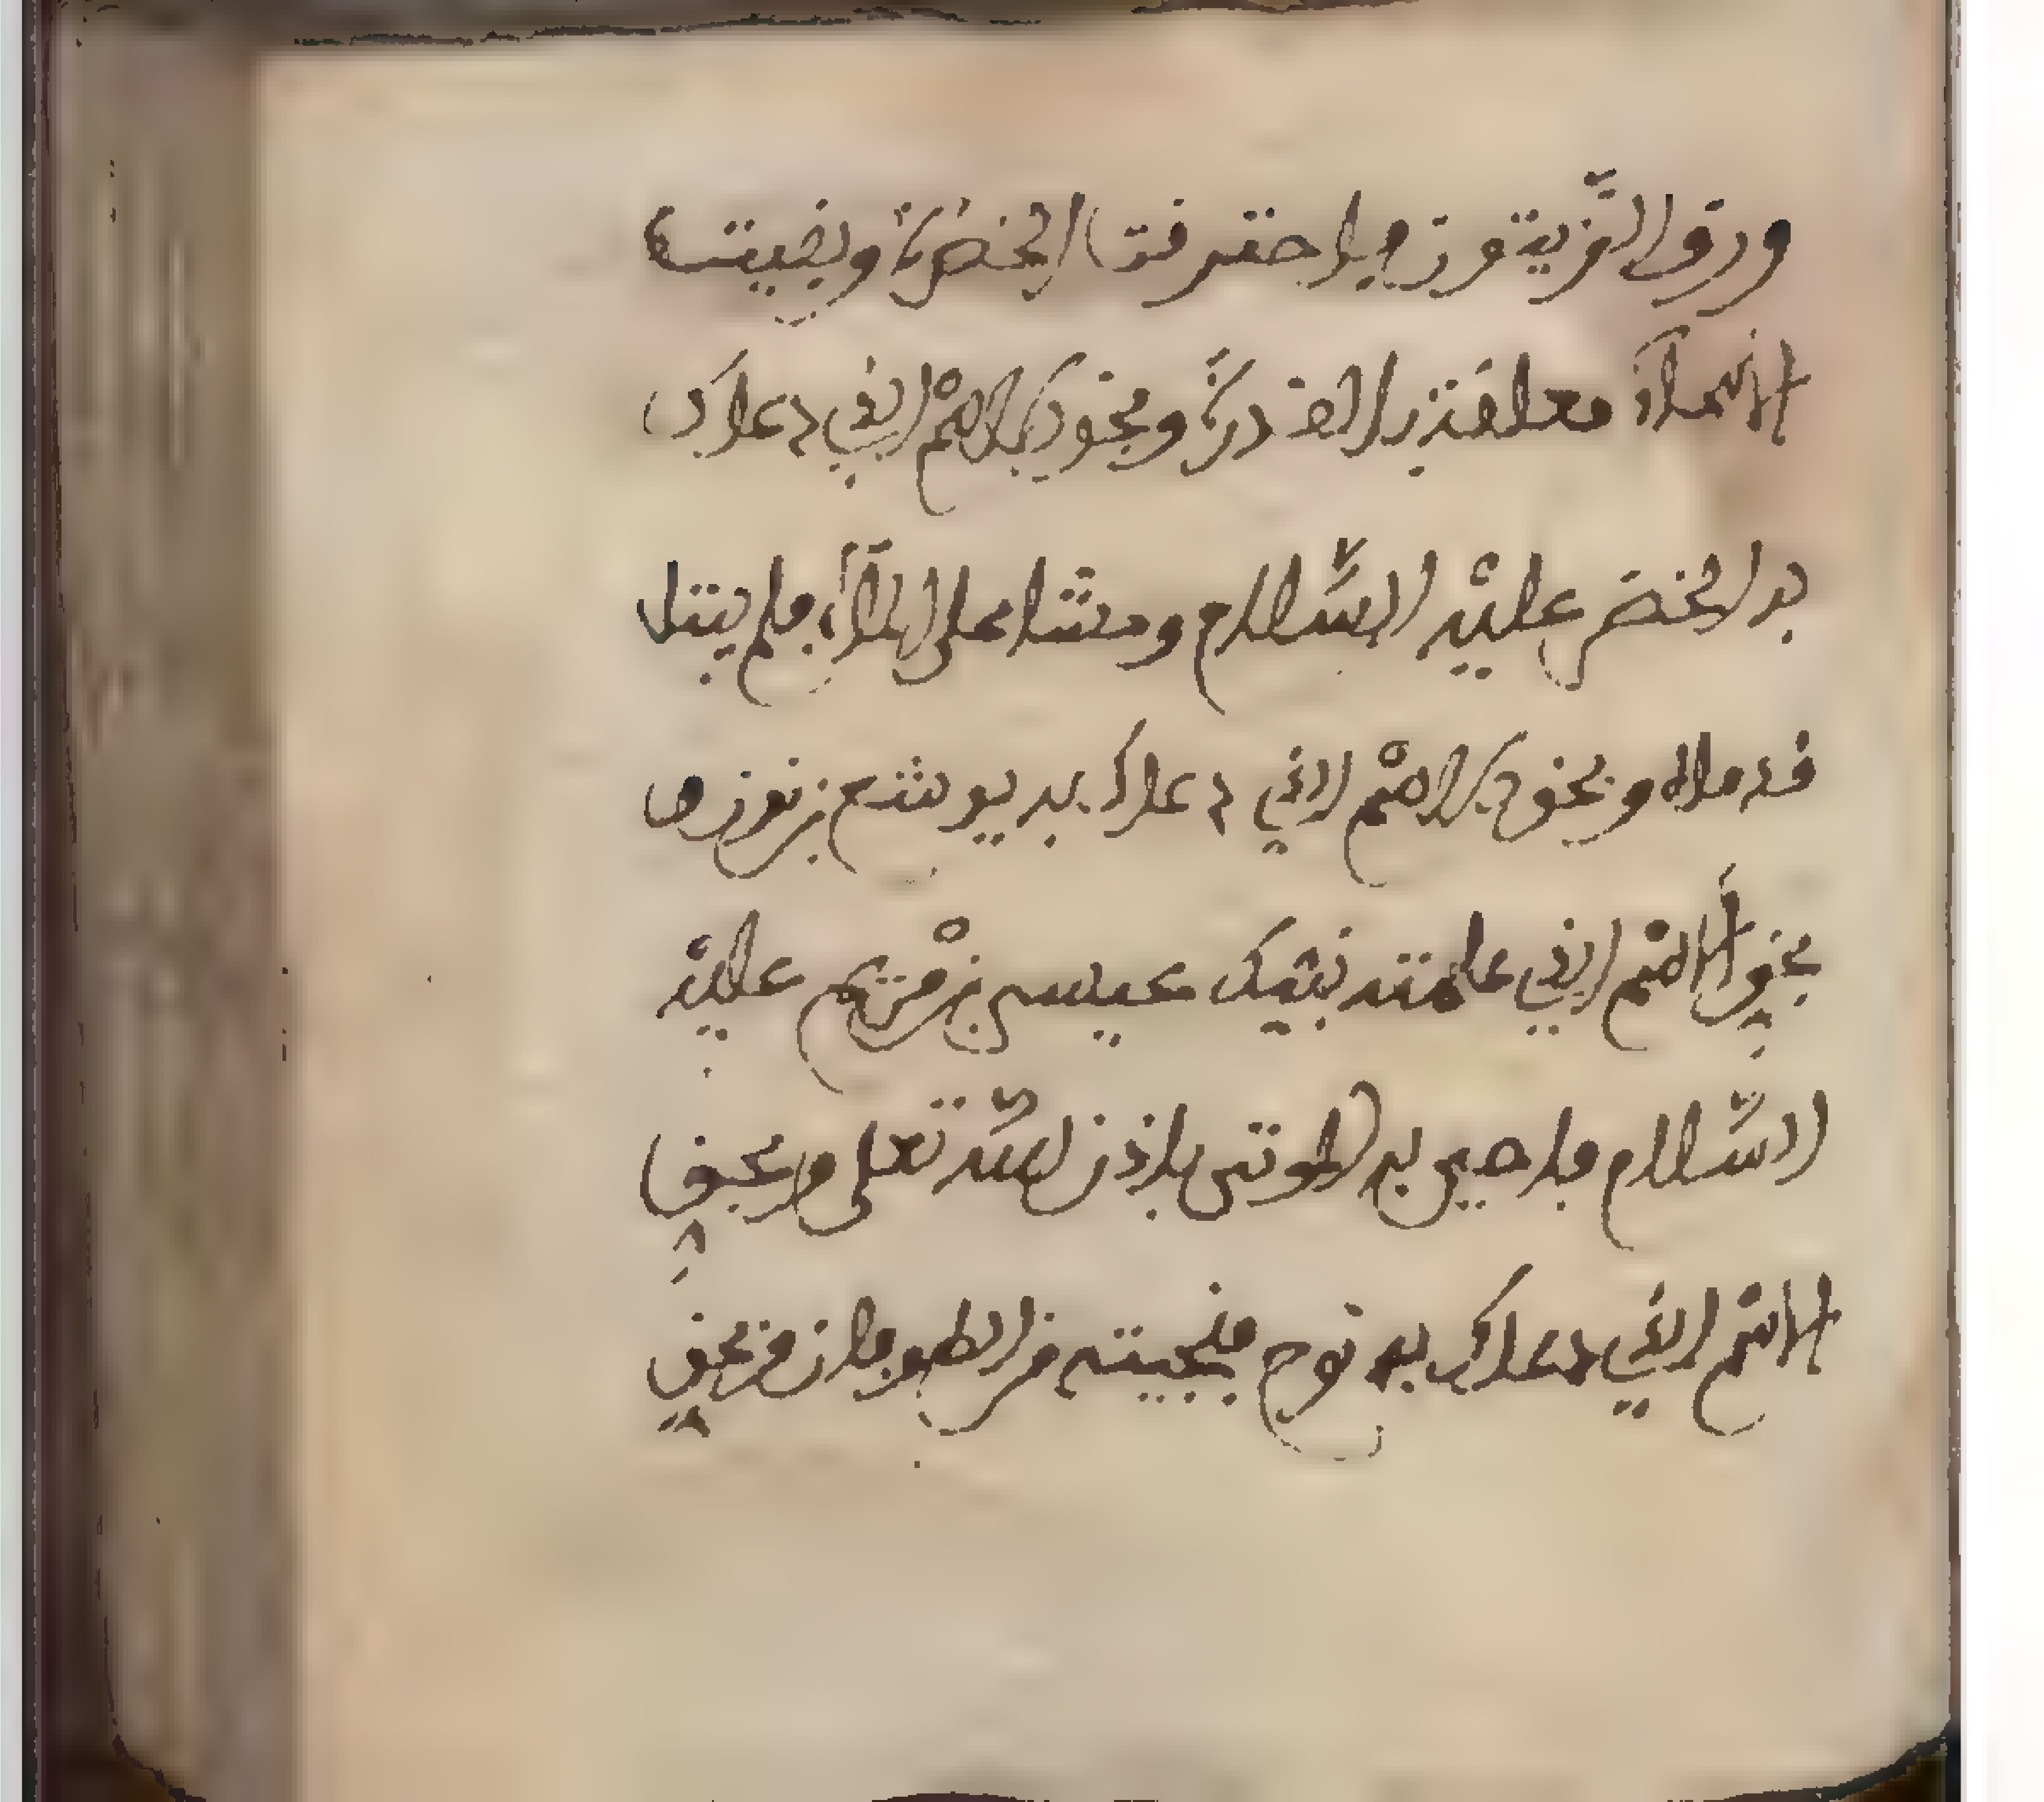 ورق الزيتون فاحترقت الخضرة وبقيت
الاسماء معلقة بالقدرة وبحق الاسم الذي دعاك
به الخضر عليه السلام ومشا على الماء فلم يبتل
قدماه وبحق الاسم الذي دعاك به يوشع بن نون
بحق الاسم الذي علمته نبيك عيسى بن مريم عليه
السلام فاحيى به الموتى باذن الله تعلى وبحق
الاسم الذي دعاك به نوح فنجيته من الطوفان من بحق